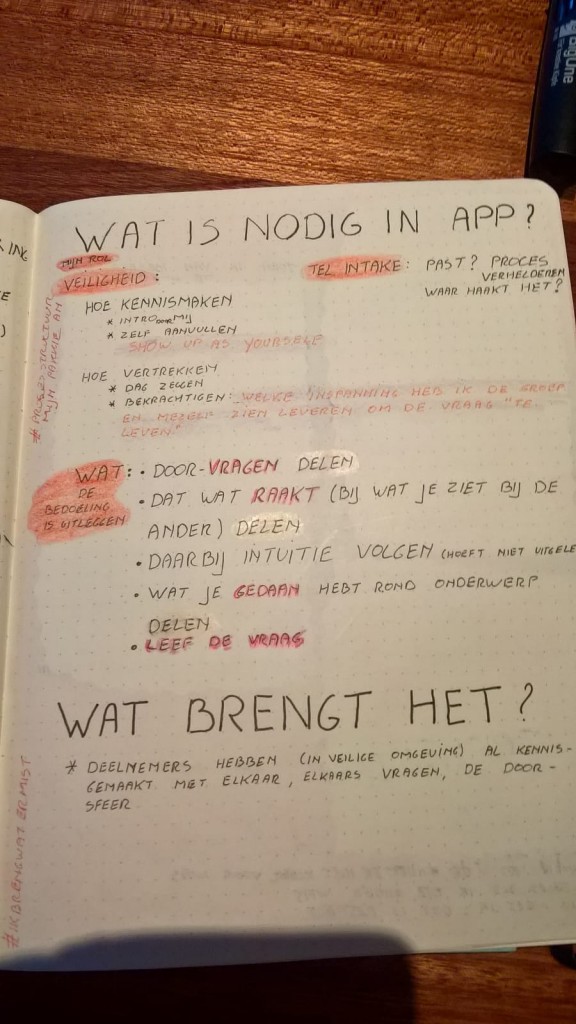 WAT IS NODIG IN APP?
MIJN ROL
VEILIGHEID:
HOE KENNISMAKEN
* INTRO DOOR MIJ
* ZELF AANVULLEN
SHOW UP AS YOURSELF
HOE VERTREKKEN
* DAG ZEGGEN
* BEKRACHTIGEN: WELKE INSPANNING HEB IK DE GROEP
EN MEZELF ZIEN LEVEREN OM DE VRAAG "TE
LEVEN"
TEL INTAKE: PAST? PROCES
VERHELDEREN
WAAR HAAKT HET?
WAT:
DE
BEDOELING
IS UITLEGGEN
• DOOR-VRAGEN DELEN
• DAT WAT RAAKT (BIJ WAT JE ZIET BIJ DE
ANDER) DELEN
• DAARBIJ INTUITIE VOLGEN (HOEFT NIET UITGELE
• WAT JE GEDAAN HEBT ROND ONDERWERP
DELEN
• LEEF DE VRAAG
WAT BRENGT HET?
* DEELNEMERS HEBBEN (IN VEILIGE OMGEVING) AL KENNIS-
GEMAAKT MET ELKAAR, ELKAARS VRAGEN, DE DOOR-
SFEER
MIJN
#IKBRENGWATERMIST
ING
BigOne